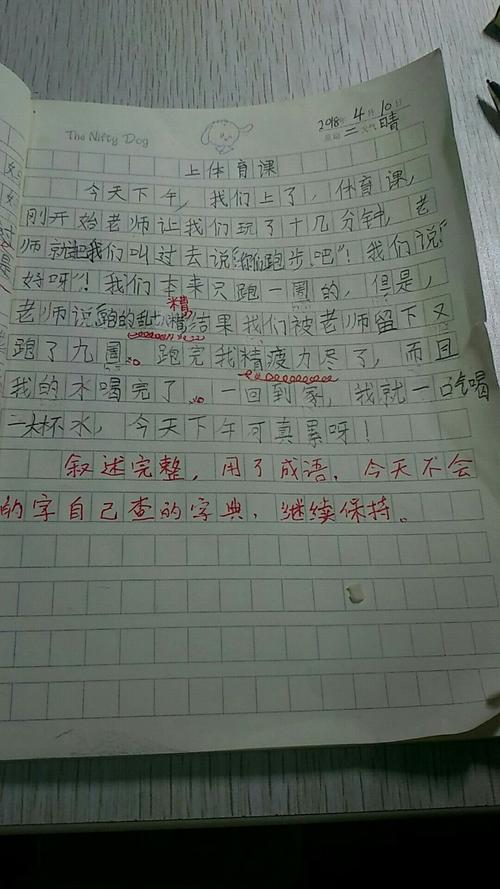 The Nifty Dog
2018年4月10日
星期二 天气晴
上体育课
今天下午,我们上了,体育课,
刚开始老师让我们玩了十几分钟,老
师就把我们叫过去说“你们跑步吧”!我们说“
好呀”!我们本来只跑一圈的,但是,
精
老师说跑的乱七八糟结果我们被老师留下又
跑了九圈。跑完我精疲力尽了,而且
我的水喝完了。一回到家,我就一口气喝
一杯水,今天下午可真累呀!
叙述完整,用了成语,今天不会
的字自己查的字典,继续保持。